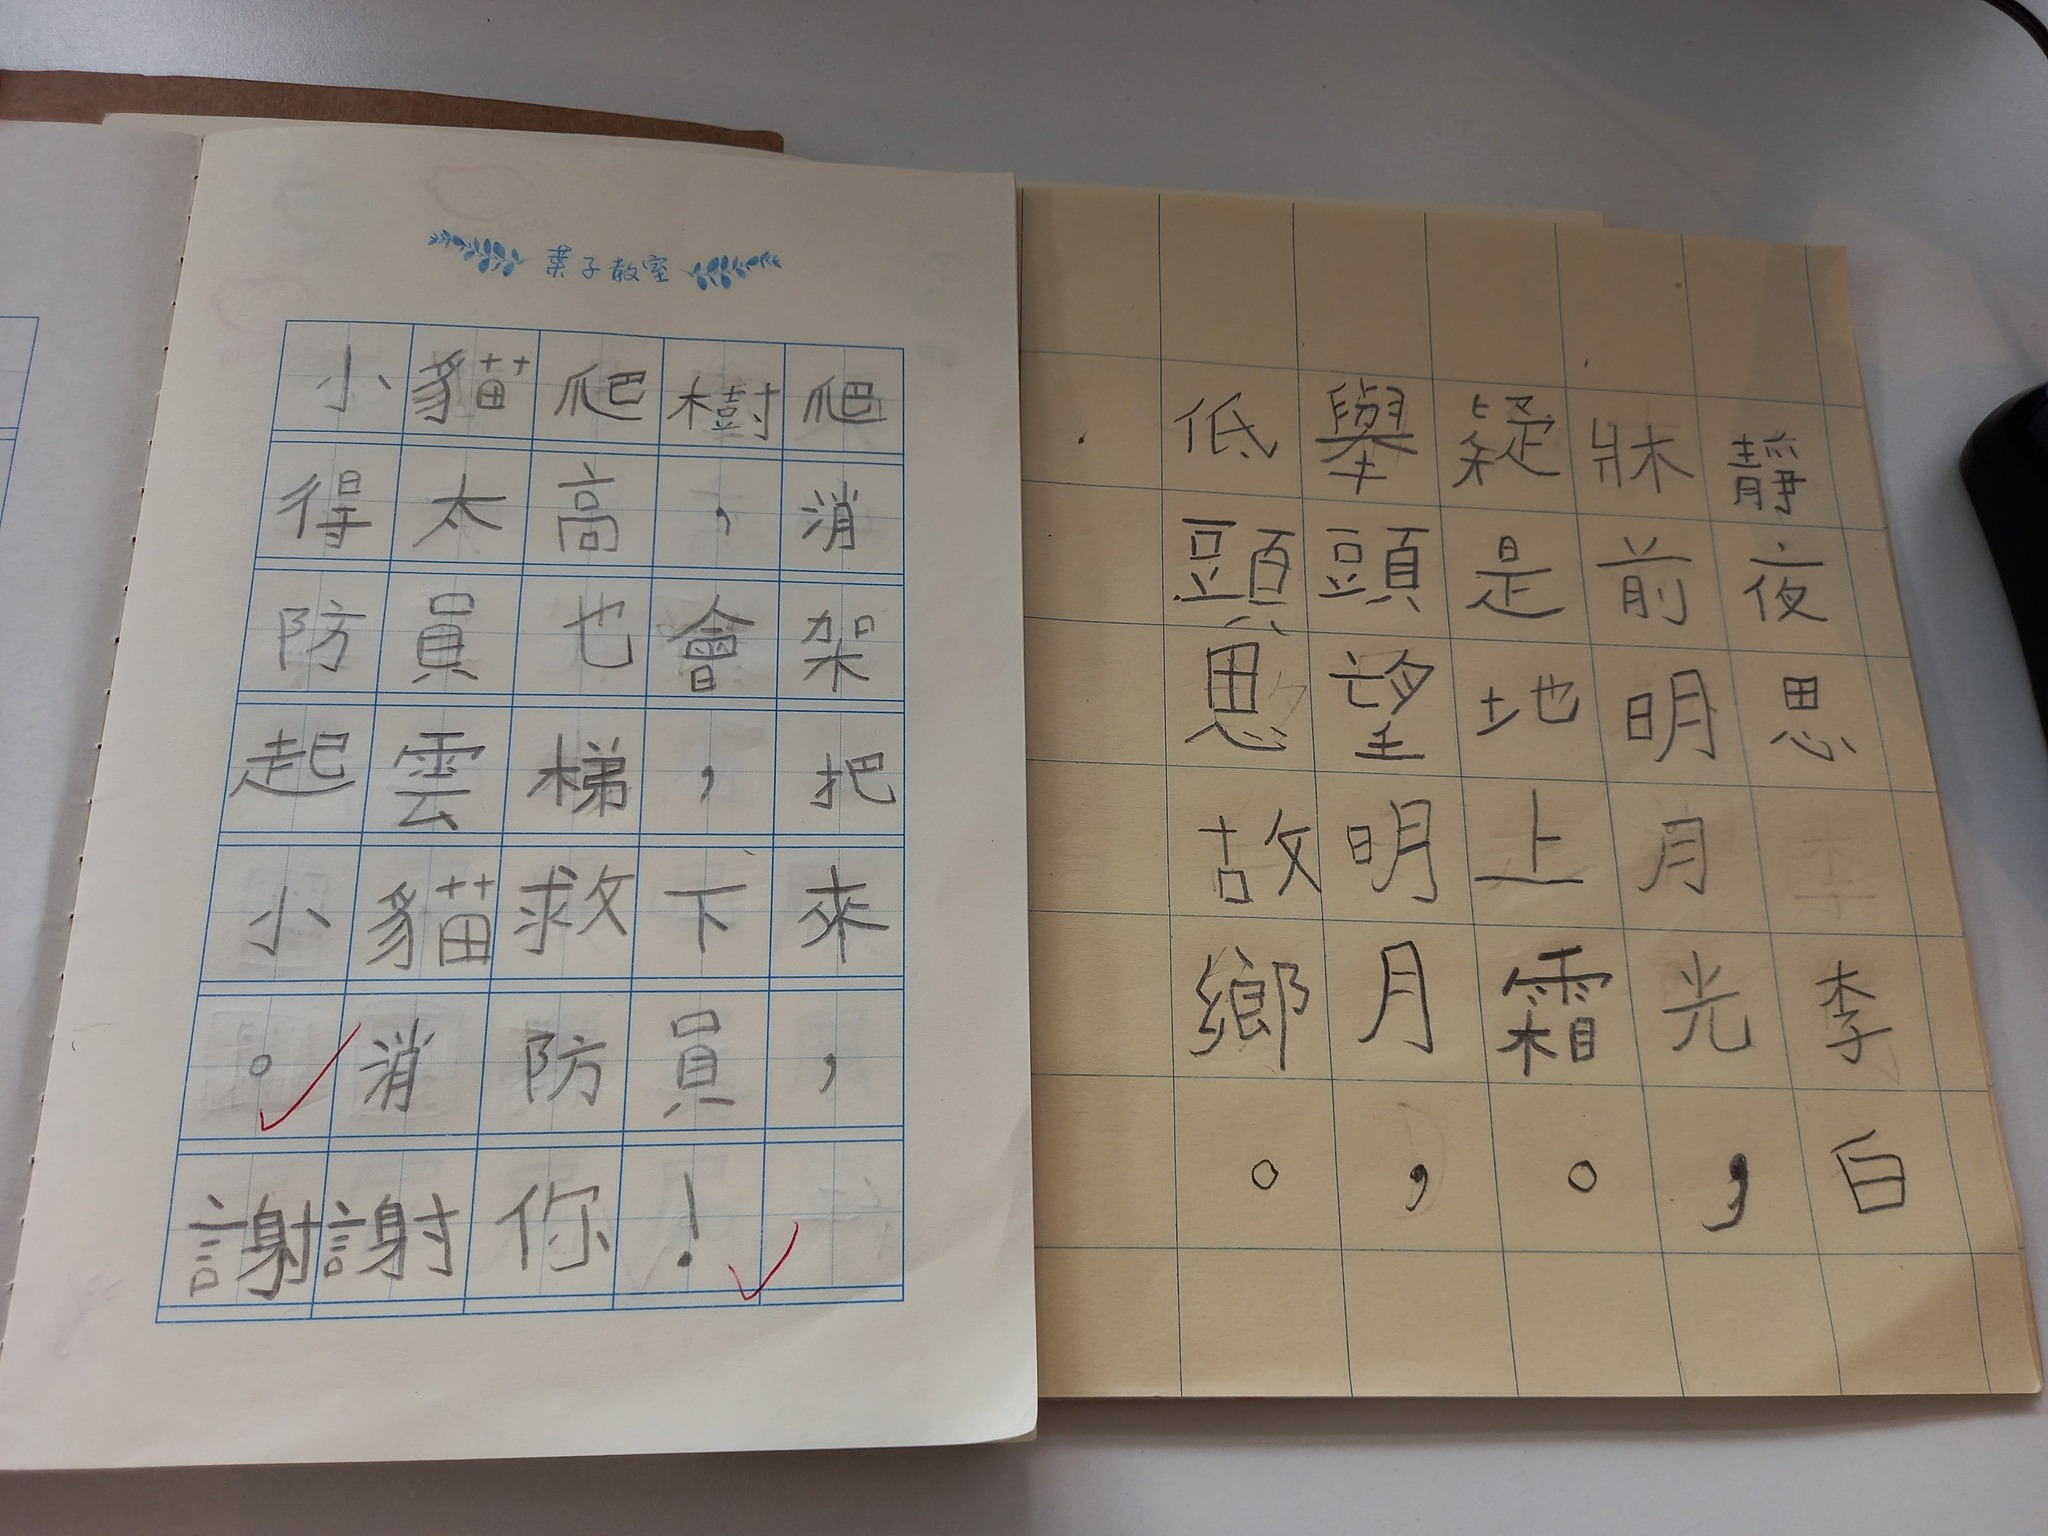 葉子教室
小貓爬樹爬
得太高，消
防員也會架
起雲梯，把
小貓救下來
。消防員，
謝謝你！
靜夜思李白
牀前明月光，
疑是地上霜。
舉頭望明月，
低頭思故鄉。